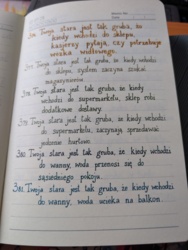 Twoja stara jest tak gruba, że
kiedy wchodzi do sklepu,
kasjerzy pytają, czy potrzebuje
wózka widłowego.
Twoja stara jest tak gruba, że kiedy wchodzi
do sklepu, system zaczyna szukać
magazynierów.
Twoja stara jest tak gruba, że kiedy
wchodzi do supermarketu, sklep robi
dodatkowe dostawy.
Twoja stara jest tak gruba, że kiedy wchodzi
do supermarketu, zaczynają sprzedawać
jedzenie hurtowo.
Twoja stara jest tak gruba, że kiedy wchodzi
do wanny, woda przenosi się do
sąsiedniego pokoju.
Twoja stara jest tak gruba, że kiedy wchodzi
do wanny, woda ucieka na balkon.